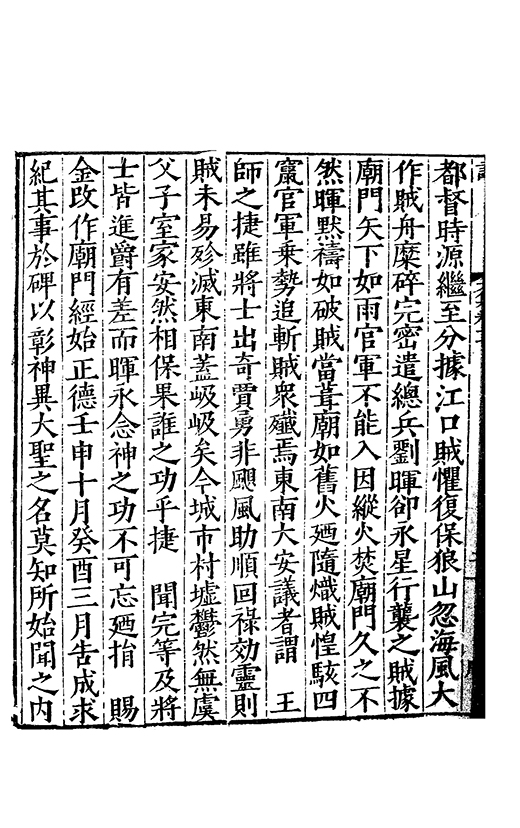 都督時源繼至分據江口賊懼復保狼山忽海風大
作賊舟糜碎完密遣總兵劉暉卻永星行襲之賊據
廟門矢下如雨官軍不能入因縱火焚廟門久之不
然暉默禱如破賊當葺廟如舊火廼隨熾賊惶駭四
竄官軍乗勢追斬賊衆殲焉東南大安議者謂　王
師之捷雖將士出奇賈勇非颶風助順回祿効靈則
賊未易殄滅東南蓋岌岌矣今城市村墟鬱然無虞
父子室家安然相保果誰之功乎捷　聞完等及將
士皆進爵有差而暉永念神之功不可忘廼捐　賜
金改作廟門經始正德壬申十月癸酉三月告成求
紀其事於碑以彰神異大聖之名莫知所始聞之内